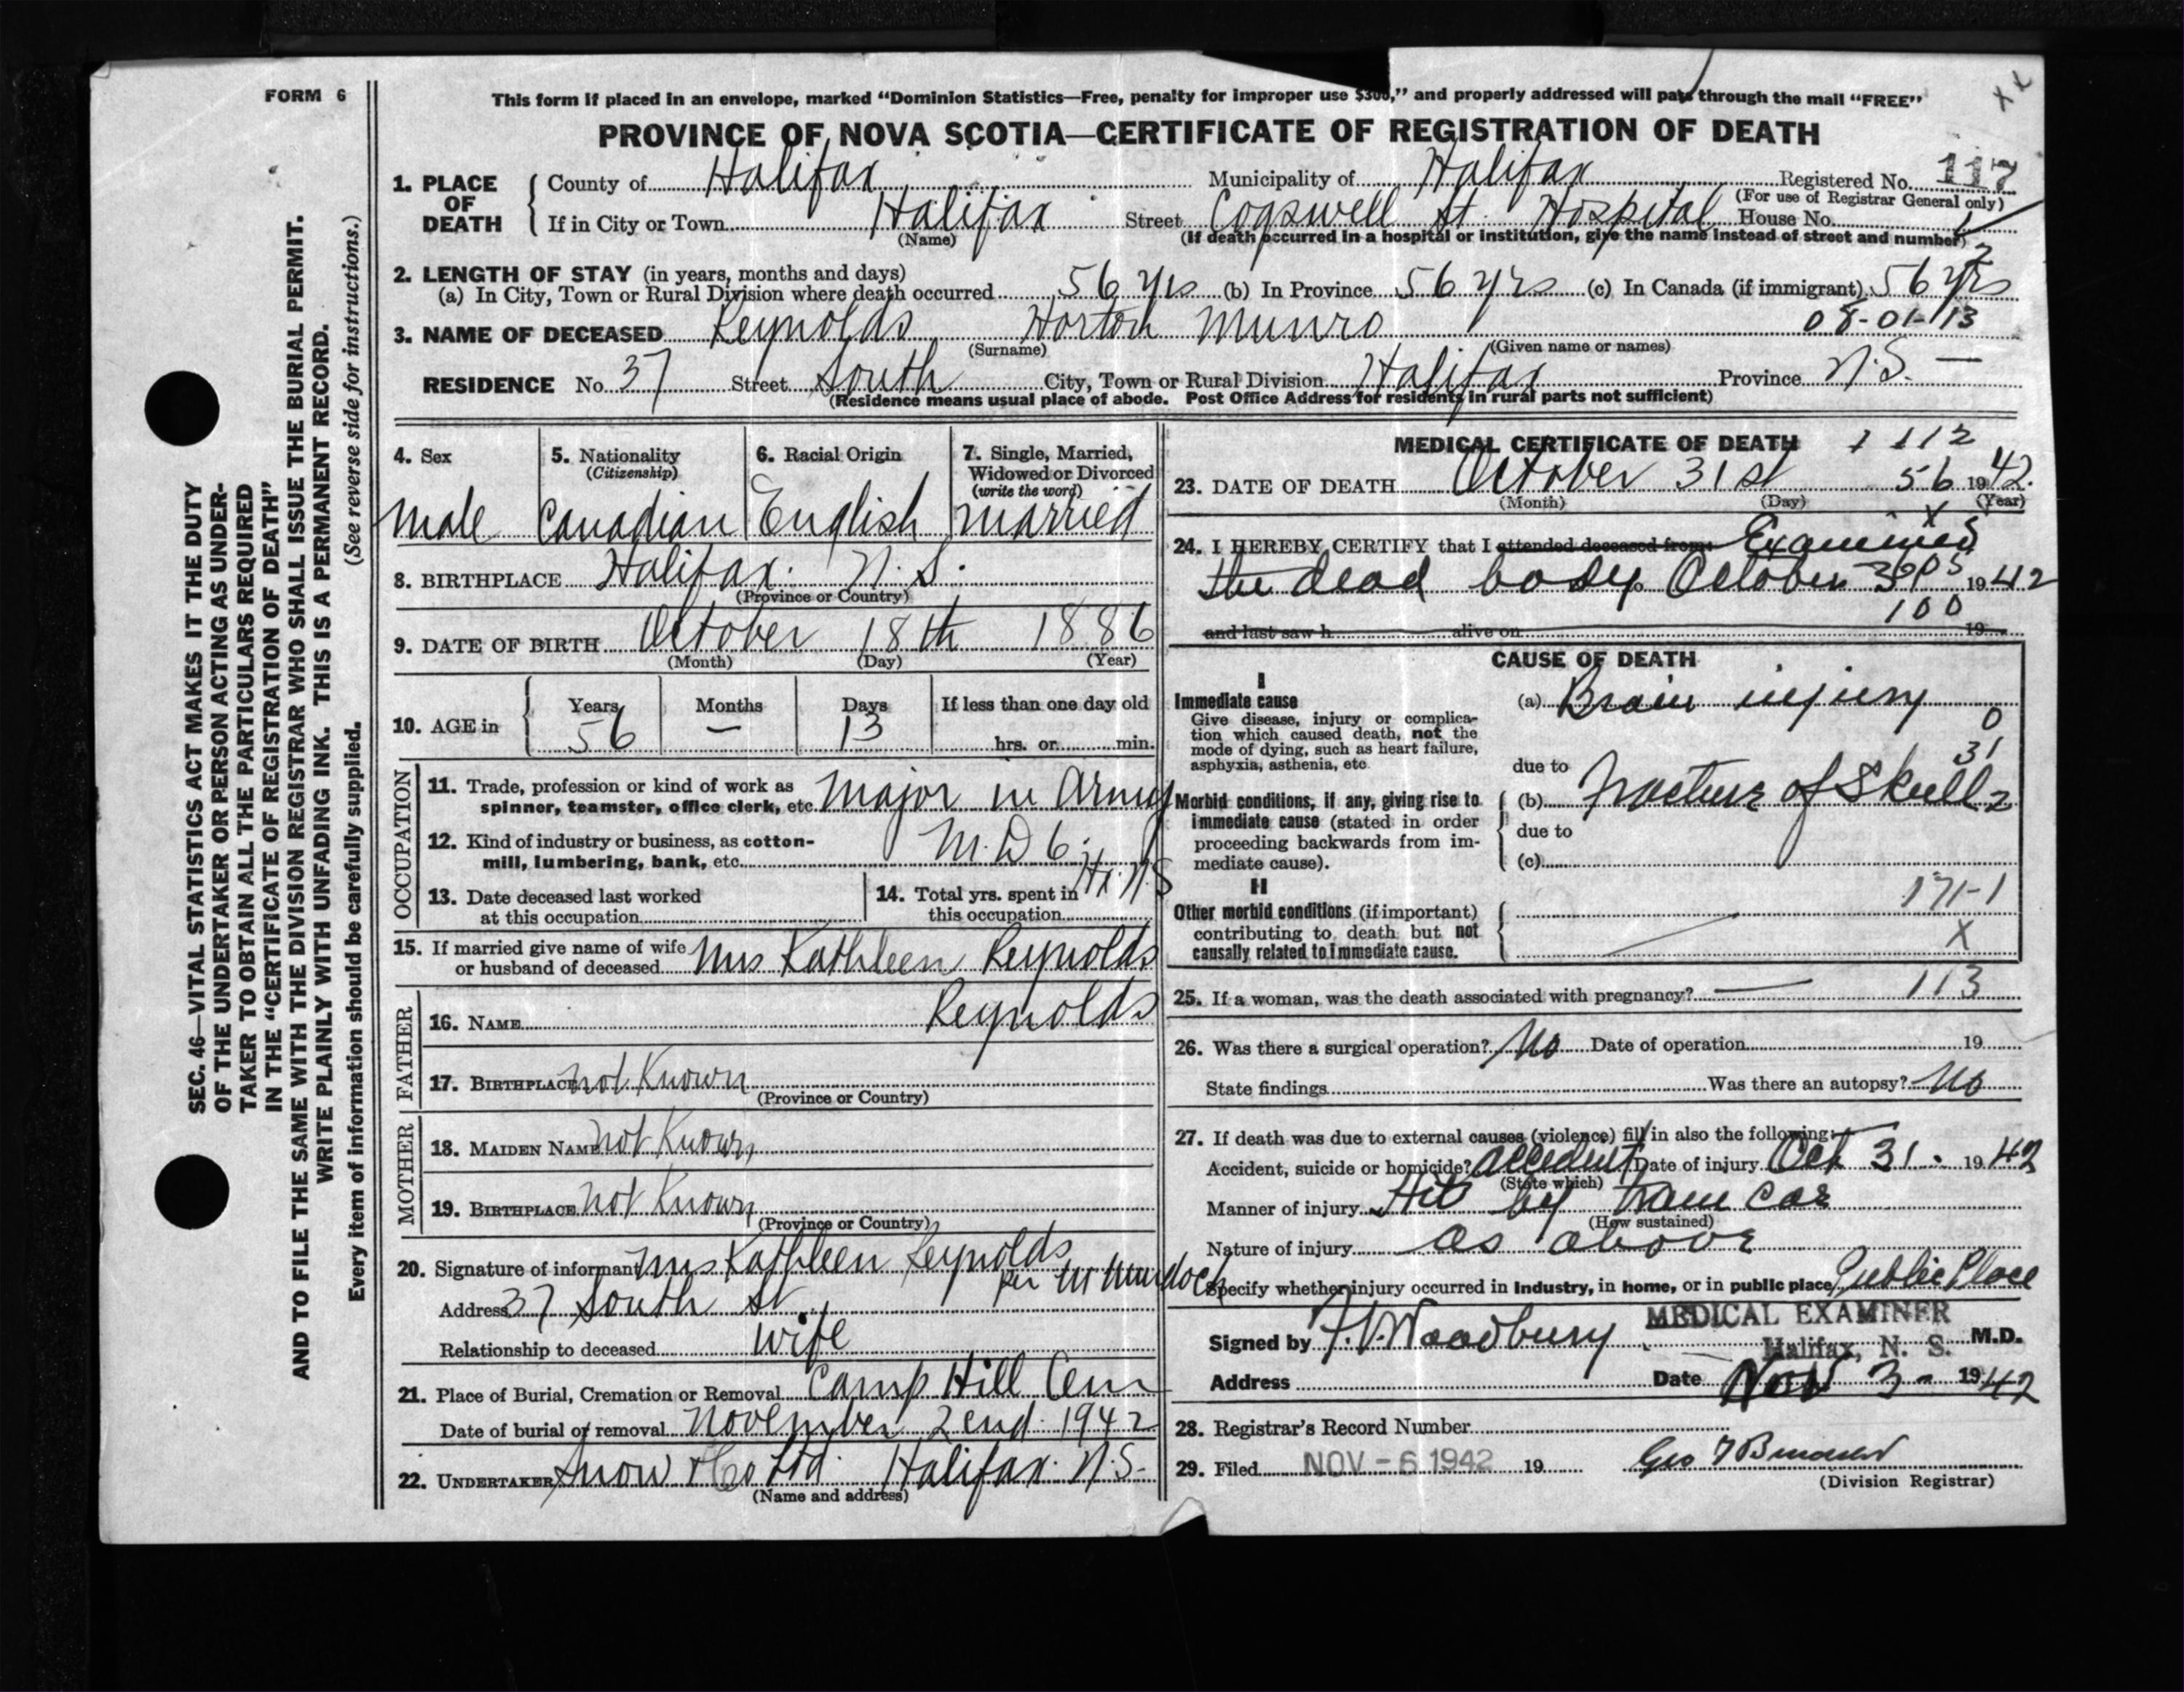 FORM 6
This form if placed in an envelope, marked “Dominion Statistics—Free, penalty for improper use $300,” and properly addressed will pass through the mail “FREE”
PROVINCE OF NOVA SCOTIA—CERTIFICATE OF REGISTRATION OF DEATH
1. PLACE OF DEATH { County of Halifax Municipality of Halifax Registered No. 117
(For use of Registrar General only)
If in City or Town Halifax Street Cogswell St. Hospital House No.
(Name) (If death occurred in a hospital or institution, give the name instead of street and number)
2. LENGTH OF STAY (in years, months and days)
(a) In City, Town or Rural Division where death occurred 56 yrs (b) In Province 56 yrs (c) In Canada (if immigrant) 56 yrs
3. NAME OF DECEASED Reynolds Horton Munro 08-01-13
(Surname) (Given name or names)
RESIDENCE No. 37 Street South City, Town or Rural Division Halifax Province N.S. —
(Residence means usual place of abode. Post Office Address for residents in rural parts not sufficient)
4. Sex
male
5. Nationality
(Citizenship)
Canadian
6. Racial Origin
English
7. Single, Married, Widowed or Divorced
(write the word)
married
8. BIRTHPLACE Halifax. N.S.
(Province or Country)
9. DATE OF BIRTH October 18th 1886
(Month) (Day) (Year)
10. AGE in { Years Months Days If less than one day old
56 — 13 hrs. or min.
OCCUPATION
11. Trade, profession or kind of work as
spinner, teamster, office clerk, etc. Major in Army
12. Kind of industry or business, as cotton-
mill, lumbering, bank, etc. M.D 6. Hx. N.S
13. Date deceased last worked
at this occupation
14. Total yrs. spent in
this occupation
15. If married give name of wife
or husband of deceased Mrs Kathleen Reynolds
FATHER
16. NAME Reynolds
17. BIRTHPLACE not Known
(Province or Country)
MOTHER
18. MAIDEN NAME not Known
19. BIRTHPLACE not Known
(Province or Country)
20. Signature of informant Mrs Kathleen Reynolds
per M Murdoch
Address 37 South St.
Relationship to deceased wife
21. Place of Burial, Cremation or Removal Camp Hill Cem
Date of burial or removal November 2end. 1942
22. UNDERTAKER Snow & Co Ltd. Halifax. N.S.
(Name and address)
MEDICAL CERTIFICATE OF DEATH 1 112
23. DATE OF DEATH October 31st 56 1942.
(Month) (Day) (Year)
X
24. I HEREBY CERTIFY that I attended deceased from: Examined
the dead body October 1942
100
and last saw h alive on 19
CAUSE OF DEATH
I
Immediate cause
Give disease, injury or complica-
tion which caused death, not the
mode of dying, such as heart failure,
asphyxia, asthenia, etc.
(a) Brain injury
0
31
due to
Morbid conditions, if any, giving rise to
immediate cause (stated in order
proceeding backwards from im-
mediate cause).
(b) Fracture of Skull 2
due to
(c)
II
Other morbid conditions (if important)
contributing to death but not
causally related to immediate cause.
171-1
X
25. If a woman, was the death associated with pregnancy? — 113
26. Was there a surgical operation? No Date of operation 19
State findings Was there an autopsy? No
27. If death was due to external causes (violence) fill in also the following:
Accident, suicide or homicide? accident Date of injury Oct 31. 1942
(State which)
Manner of injury Hit by tram car
(How sustained)
Nature of injury as above
Specify whether injury occurred in Industry, in home, or in public place Public Place
MEDICAL EXAMINER
Signed by F.V. Woodbury Halifax, N. S. M.D.
Address Date Nov 3 - 1942
28. Registrar's Record Number
29. Filed NOV - 6 1942 19
(Division Registrar)
SEC. 46—VITAL STATISTICS ACT MAKES IT THE DUTY
OF THE UNDERTAKER OR PERSON ACTING AS UNDER-
TAKER TO OBTAIN ALL THE PARTICULARS REQUIRED
IN THE “CERTIFICATE OF REGISTRATION OF DEATH”
AND TO FILE THE SAME WITH THE DIVISION REGISTRAR WHO SHALL ISSUE THE BURIAL PERMIT.
WRITE PLAINLY WITH UNFADING INK. THIS IS A PERMANENT RECORD.
Every item of information should be carefully supplied. (See reverse side for instructions.)